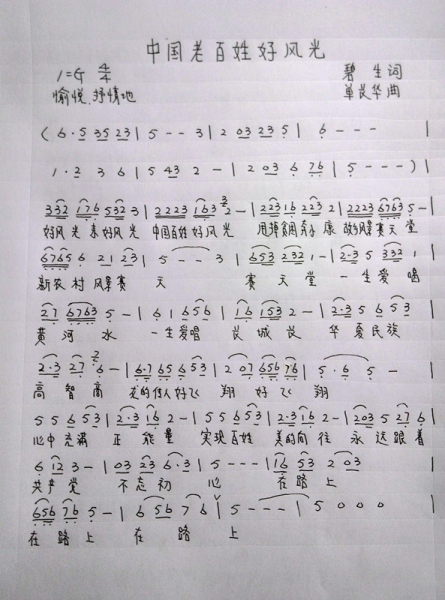 中国老百姓好风光
1=G 4/4 碧生词
愉悦.抒情地 单茂华曲
(6·5 35 23 | 5 - - 3 | 2 03 23 5 | 6 - - -
1·2 3 6 | 5 43 2 - | 2 03 6 76 | 5 - - -) |
332 176 5323 | 2223 163 2 - | 223 16 223 2 | 2223 6763 5 -
好风光 来好风光 中国百姓好风光 康 风景赛天堂
6765 6 21 23 | 5 - - 3 | 653 232 1 - | 2·3 5 332 1
新农村风景赛 天 赛天堂 一生爱唱
27 6763 5 - | 6 1 656 | 16 153 2 - | 2·3 5 6 53
黄河水 一生爱唱 长城长 华夏民族
2·3 27 6 - | 6·7 65 6 53 | 2 07 656 76 | 5 · 6 5 -
高智商 龙的传人好飞 翔 好飞 翔
5 5 6 53 | 2·3 16 2 - | 5 5 6 53 | 2·3 16 2 - | 203 5 27 6
心中充满 正能量 实现百姓 美的向往 永远跟着
6 12 3 - | 03 23 6·3 | 5 - - - | 16 53 2 03
共产党 不忘初 心 在路上
656 76 5 - | 6 56 76 | 5 - - - | 5 0 0 0
在路上 在路 上